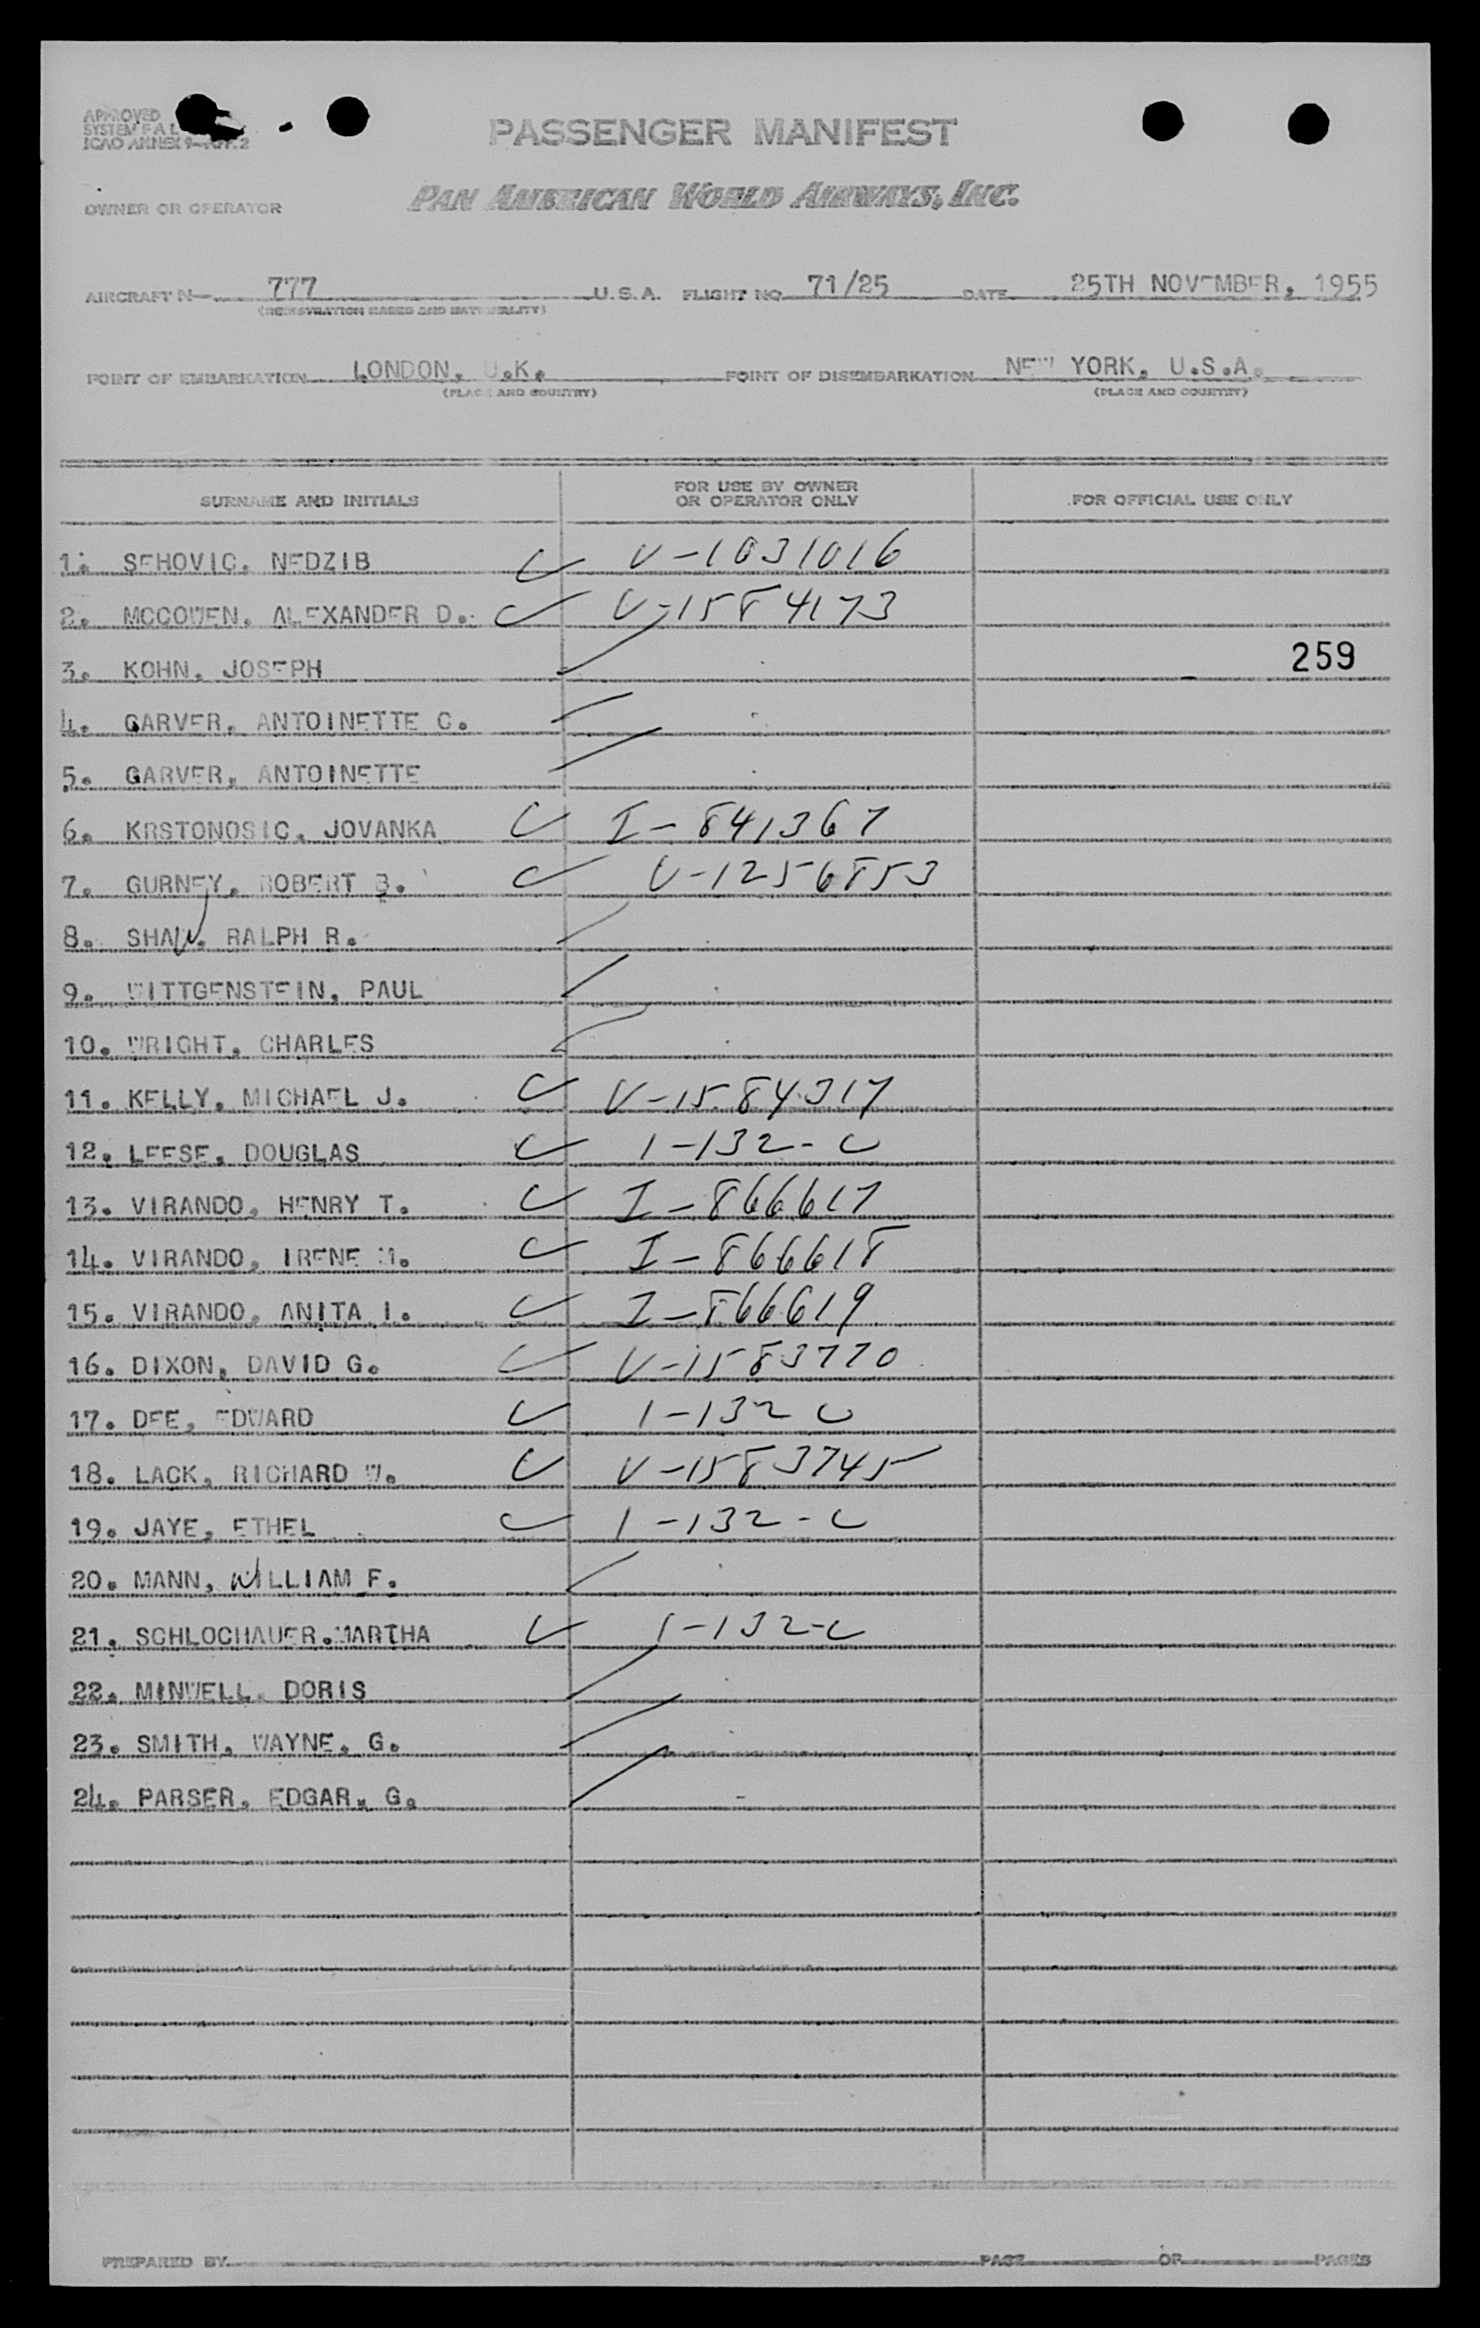 APPROVED
SYSTEM F A L
ICAO ANNEX 9-APP. 2
PASSENGER MANIFEST
OWNER OR OPERATOR PAN AMERICAN WORLD AIRWAYS, INC.
AIRCRAFT N— 777 U.S.A. FLIGHT NO 71/25 DATE 25TH NOVEMBER, 1955
POINT OF EMBARKATION LONDON, U.K. POINT OF DISEMBARKATION NEW YORK, U.S.A.
(PLACE AND COUNTRY) (PLACE AND COUNTRY)
SURNAME AND INITIALS FOR USE BY OWNER OR OPERATOR ONLY FOR OFFICIAL USE ONLY
1. SEHOVIC, NEDZIB V-1031016
2. MCCOWEN, ALEXANDER D. V-1584173
3. KOHN, JOSEPH 259
4. GARVER, ANTOINETTE C.
5. GARVER, ANTOINETTE
6. KRSTONOSIC, JOVANKA I-841367
7. GURNEY, ROBERT B. V-1256853
8. SHAW, RALPH R.
9. WITTGENSTEIN, PAUL
10. WRIGHT, CHARLES
11. KELLY, MICHAEL J. V-1584317
12. LEESE, DOUGLAS 1-132-C
13. VIRANDO, HENRY T. I-866617
14. VIRANDO, IRENE M. I-866618
15. VIRANDO, ANITA I. I-866619
16. DIXON, DAVID G. V-1583770
17. DEE, EDWARD 1-132 C
18. LACK, RICHARD W. V-1583745
19. JAYE, ETHEL 1-132-C
20. MANN, WILLIAM F.
21. SCHLOCHAUER.MARTHA 1-132-C
22. MINWELL, DORIS
23. SMITH, WAYNE, G.
24. PARSER, EDGAR, G.
PREPARED BY PAGE OF PAGES